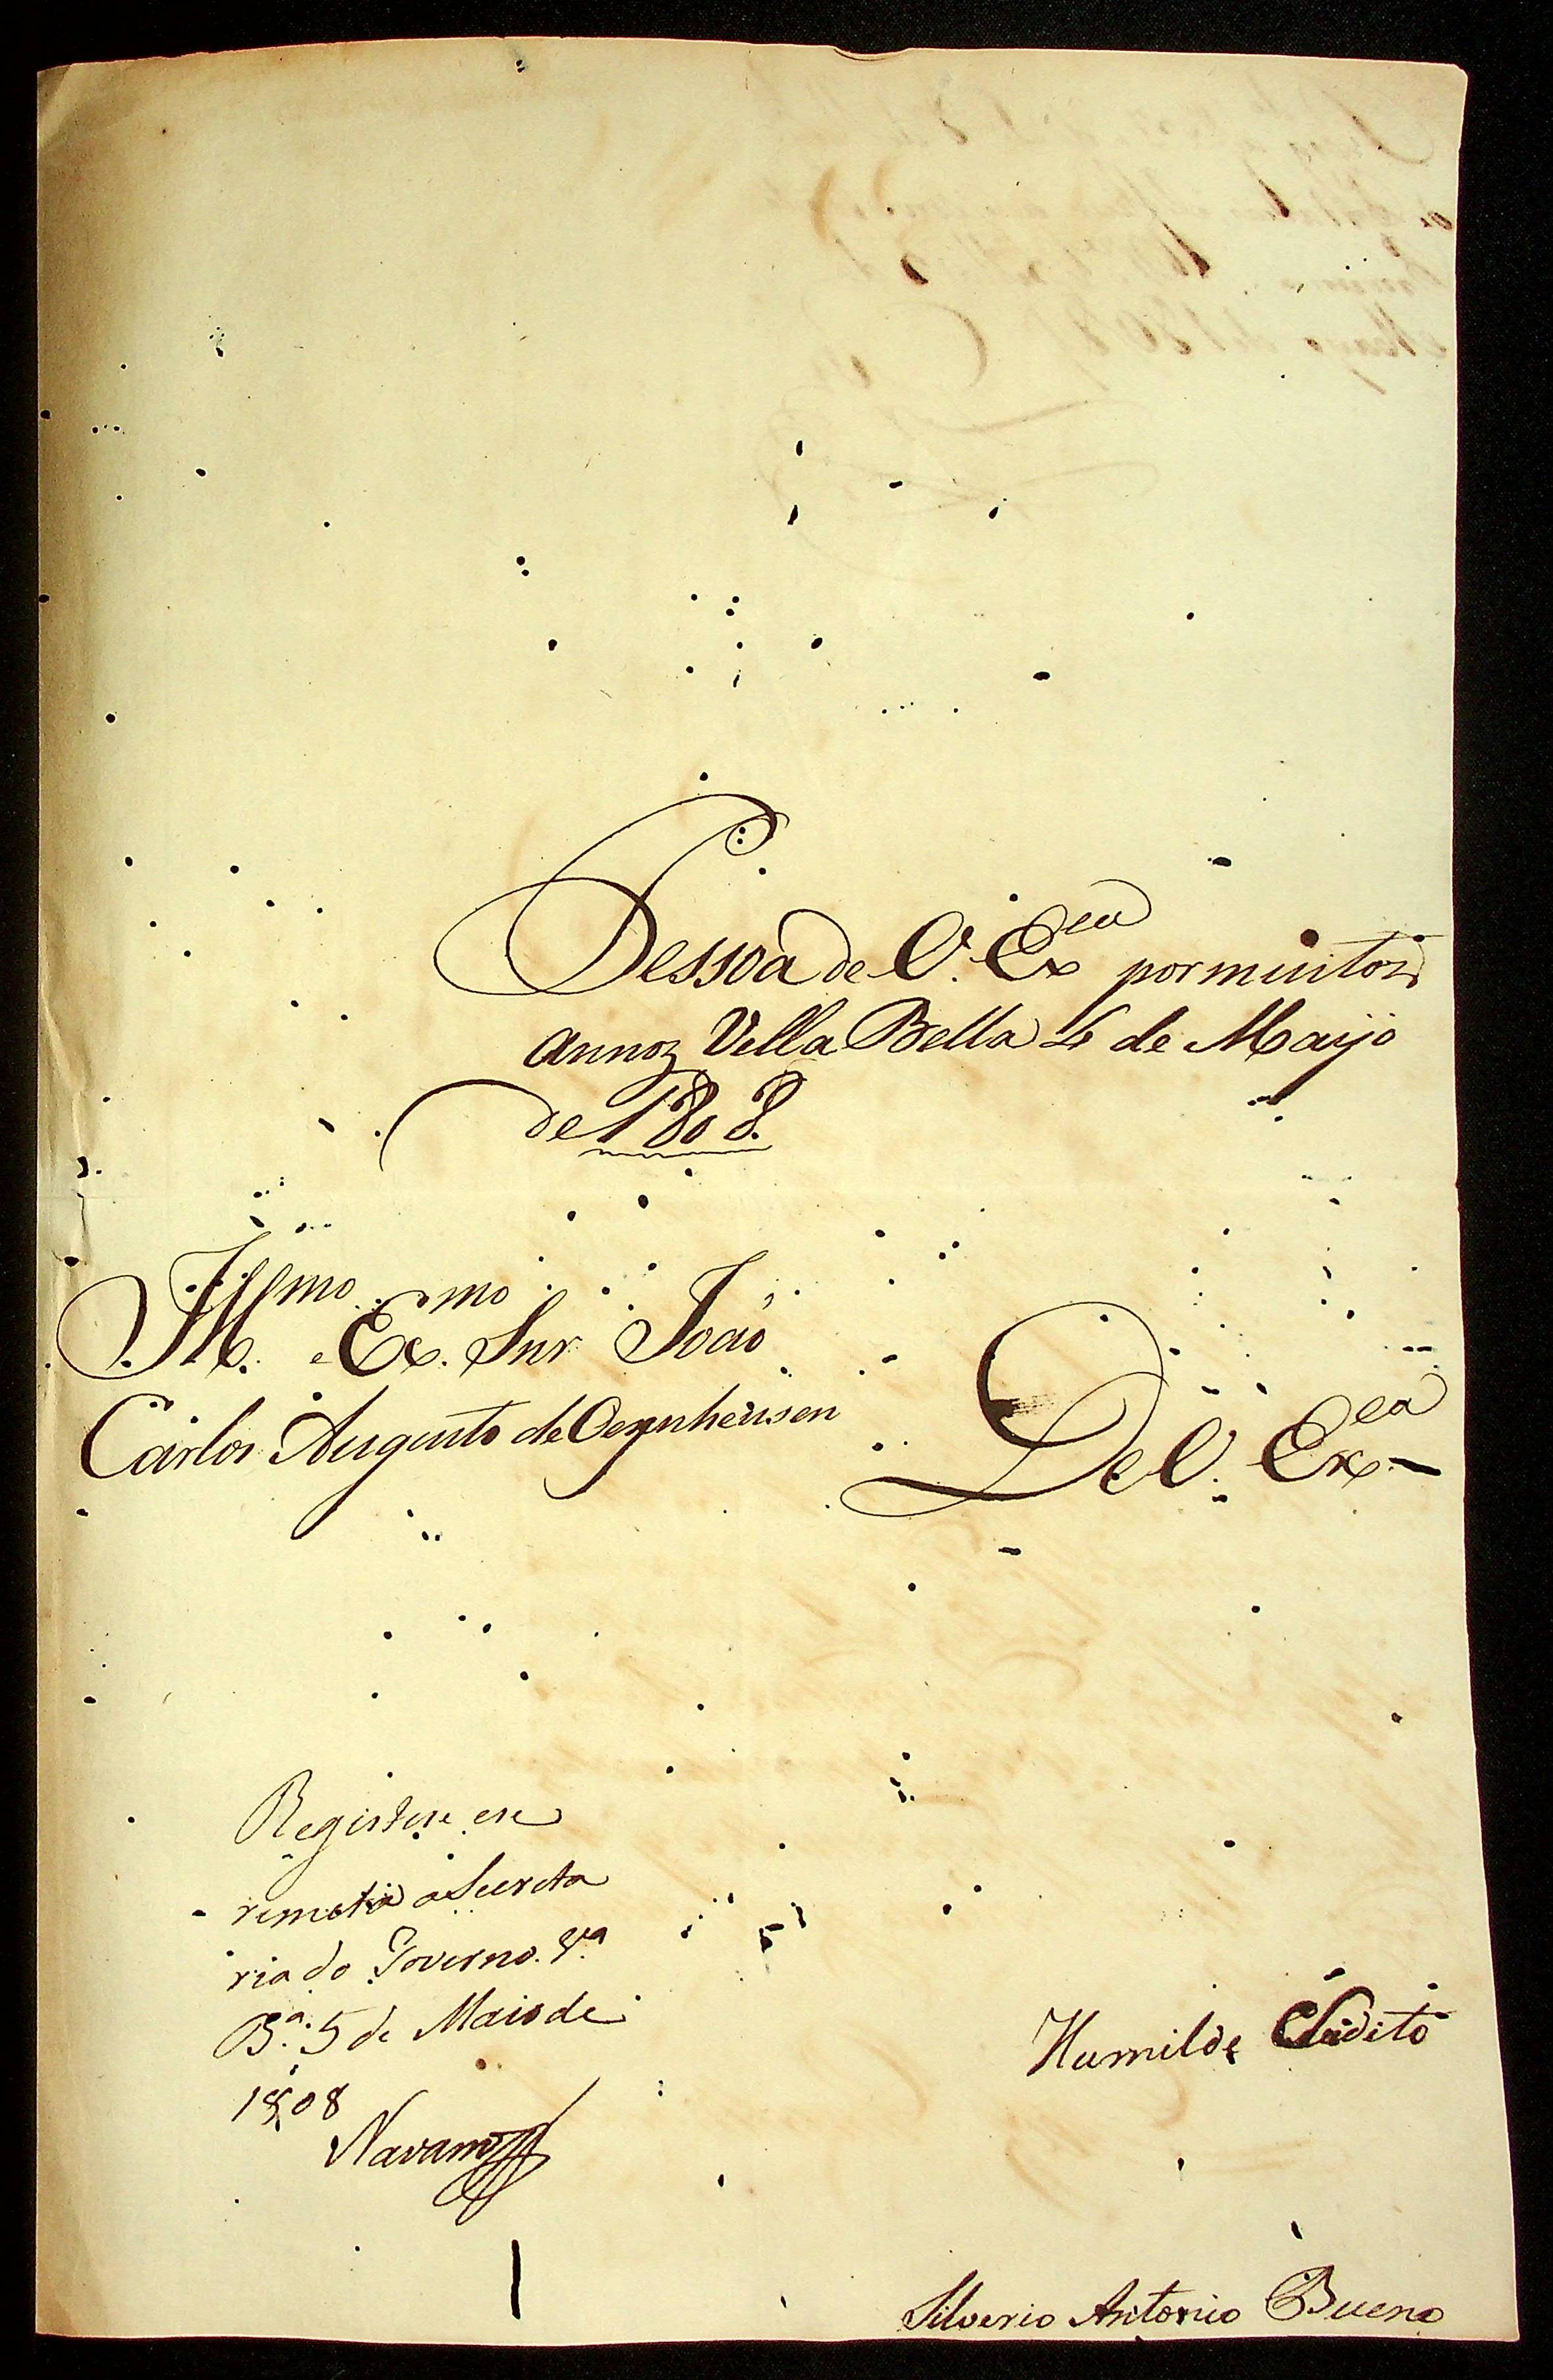 Pessoa de V. Ex.cia por muitoz
annoz Villa Bella 4 de Mayo
de 1808.
Ill.mo e Ex.mo Snr João
Carlos Augusto de Oeynheusen
De V. Ex.cia
Registese ese
remeta a Secreta
ria do Governo. V.a
B.a 5 de Maio de
1808
Navarro
Humilde Sudito
Silverio Antonio Bueno